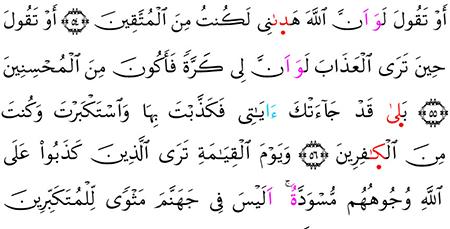 أَوْ تَقُولَ لَوَ اَنَّ اللَّهَ هَدىٰنِى لَكُنتُ مِنَ الْمُتَّقِينَ ﴿٥٤﴾ أَوْ تَقُولَ
حِينَ تَرَى الْعَذَابَ لَوَ اَنَّ لِى كَرَّةً فَأَكُونَ مِنَ الْمُحْسِنِينَ
﴿٥٥﴾ بَلىٰ قَدْ جَآءَتْكَ ءَايَٰتِى فَكَذَّبْتَ بِهَا وَاسْتَكْبَرْتَ وَكُنتَ
مِنَ الْكٰفِرِينَ ﴿٥٦﴾ وَيَوْمَ الْقِيَٰمَةِ تَرَى الَّذِينَ كَذَبُواْ عَلَى
اللَّهِ وُجُوهُهُم مُّسْوَدَّةٌ ۚ اَلَيْسَ فِى جَهَنَّمَ مَثْوًى لِّلْمُتَكَبِّرِينَ